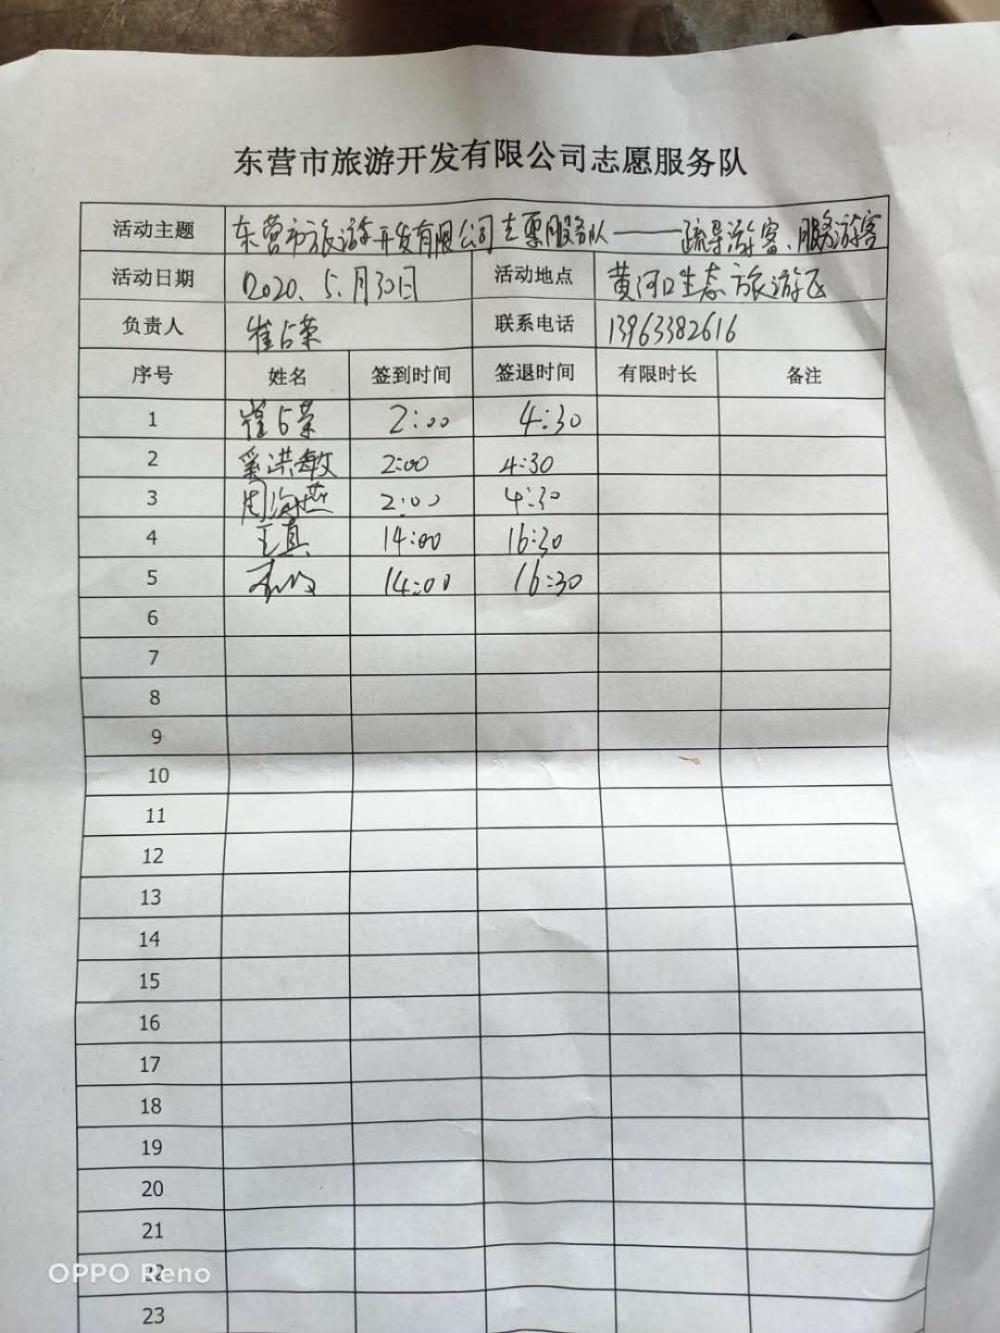 东营市旅游开发有限公司志愿服务队
活动主题 东营市旅游开发有限公司志愿服务队——疏导游客、服务游客
活动日期 2020.5.月30日 活动地点 黄河口生态旅游区
负责人 崔占荣 联系电话 13963382616
序号 姓名 签到时间 签退时间 有限时长 备注
1 崔占荣 2:00 4:30
2 洪敏 2:00 4:30
3 周海燕 2:00 4:30
4 王真 14:00 16:30
5 14:00 16:30
6
7
8
9
10
11
12
13
14
15
16
17
18
19
20
21
22
OPPO Reno
23